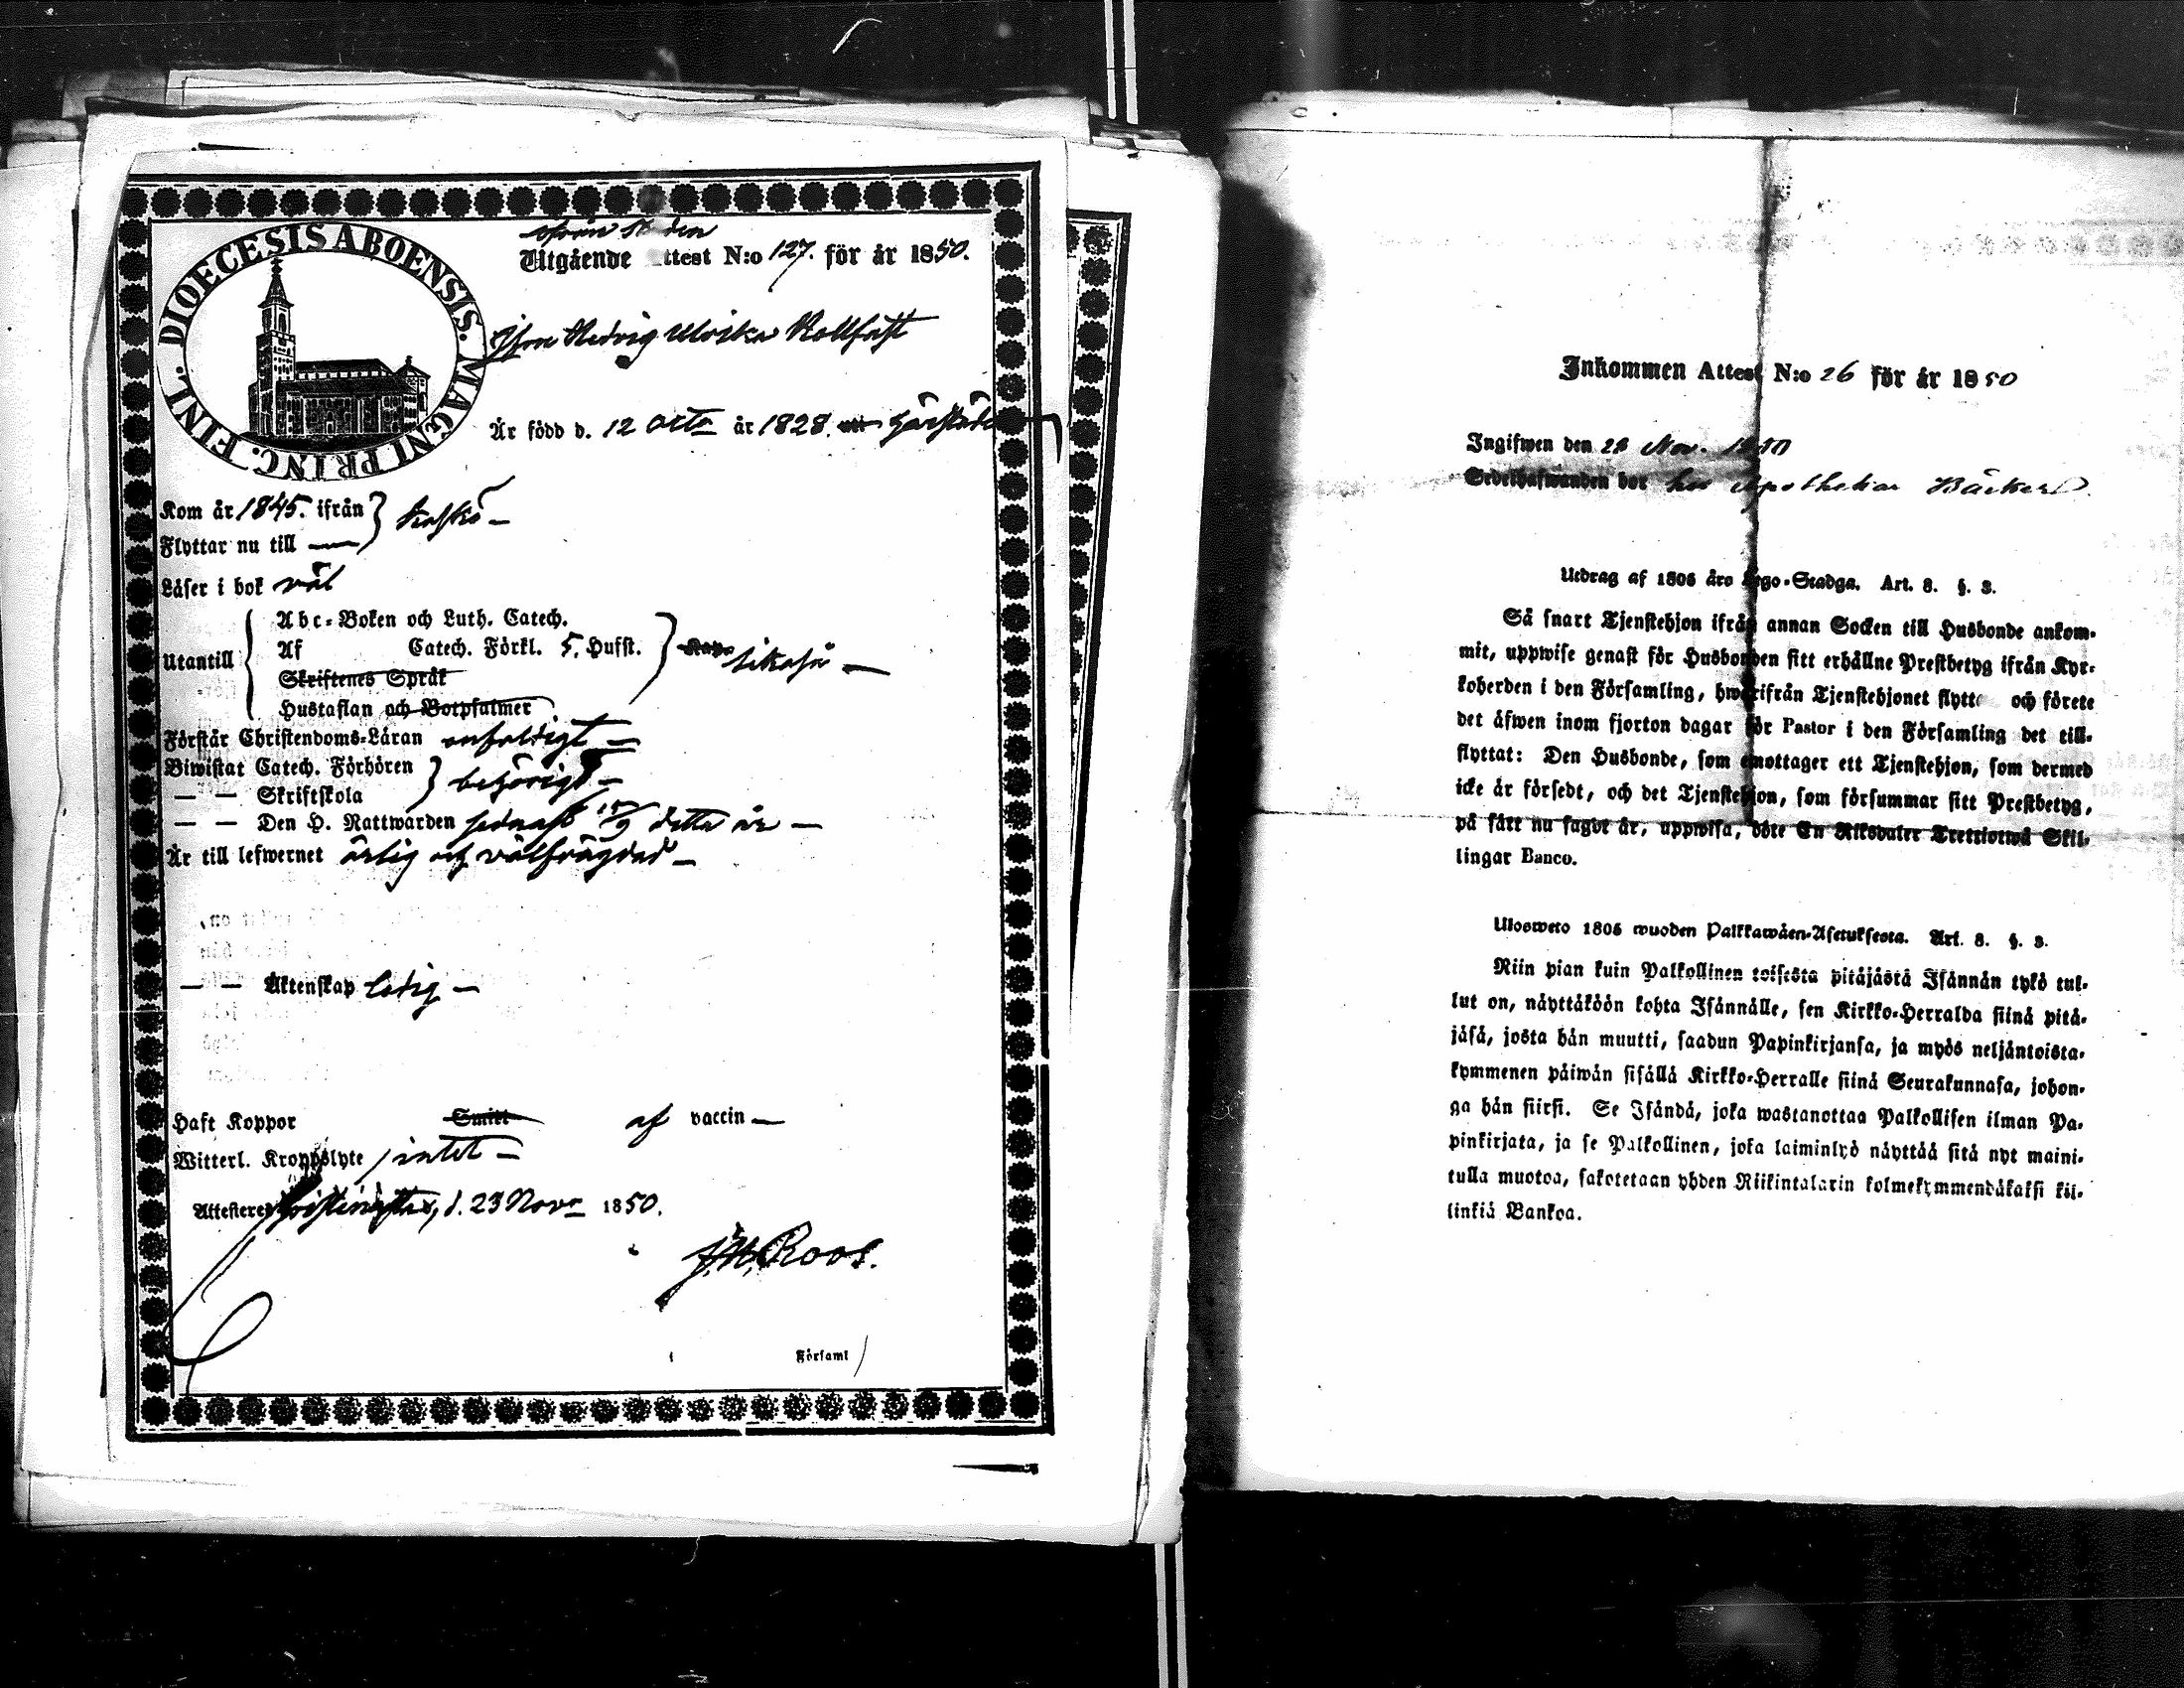 DIOECESIS ABOENSIS. MAGNI PRINC. FINL.
ifrån staden
Utgående Attest N:o 127. för år 1850.
Hedvig Ulrika Rollfast
Är född d. 12 Octr år 1828. härstädes
Kom år 1845. ifrån } Kaskö —
Flyttar nu till —
Läser i bok väl
Abc-Boken och Luth. Catech.
Utantill Af Catech. Förkl. 5. Hufst. likaså —
Skriftenes Språk
Hustaflan och Botpsalmer
Förstår Christendoms-Läran enfaldigt —
Biwistat Catech. Förhören } behörigt —
— — Skriftskola
— — Den H. Nattwarden sednast 15/9 detta år —
Är till lefwernet ärlig och välfrägdad —
— — Äktenskap ledig —
Haft Koppor Smitt af vaccin —
Witterl. Kroppslyte intet —
Attesterer Christinestad, d. 23 Novr 1850.
J. W. Roos.
Församl
Inkommen Attest N:o 26 för år 1850
Ingifwen den 28 Nov. 1850
Sedelhafwanden bor hos Apothekar Bäcker
Utdrag af 1805 års Lego-Stadga. Art. 8. §. 3.
Så snart Tjenstehjon ifrån annan Socken till Husbonde ankom-
mit, uppwise genast för Husbonden sitt erhållne Prestbetyg ifrån Kyr-
koherden i den Församling, hwarifrån Tjenstehjonet flytt och förete
det äfwen inom fjorton dagar för Pastor i den Församling det till-
flyttat: Den Husbonde, som emottager ett Tjenstehjon, som dermed
icke är försedt, och det Tjenstehjon, som försummar sitt Prestbetyg,
på sätt nu sagdt är, uppwisa, böte En Riksdaler Trettiotwå Skil-
lingar Banco.
Ulosweto 1805 wuoden Palkkawäen-Asetuksesta. Art. 8. §. 3.
Niin pian kuin Palkollinen toisesta pitäjästä Isännän tykö tul-
lut on, näyttäköön kohta Isännälle, sen Kirkko-Herralda siinä pitä-
jäsä, josta hän muutti, saadun Papinkirjansa, ja myös neljäntoista-
kymmenen päiwän sisällä Kirkko-Herralle siinä Seurakunnasa, johon-
ga hän siirsi. Se Isändä, joka wastanottaa Palkollisen ilman Pa-
pinkirjata, ja se Palkollinen, joka laiminlyö näyttää sitä nyt maini-
tulla muotoa, sakotetaan yhden Riikintalarin kolmekymmendäkaksi kil-
linkiä Bankoa.